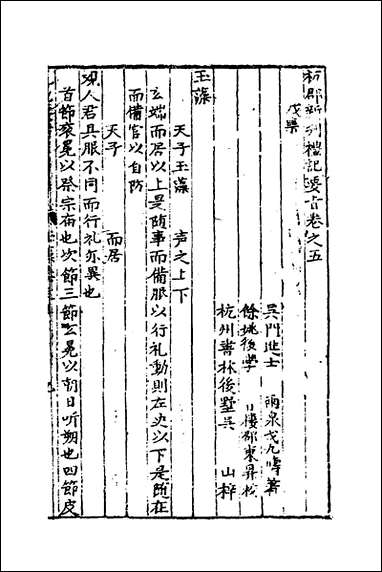 杭郡新刋禮記要旨卷之五
戊集
吳門進士 兩泉戈九疇著
餘姚後學 月樓郜東昇校
杭州書林後墅吳 山梓
玉藻
天子玉藻 声之上下
玄端而居以上是随事而備服以行礼動則左史以下是随在
而備官以自防
天子 而居
人君具服不同而行礼亦異也
首節衮冕以祭宗庙也次節三節玄冕以朝日听朔也四節皮